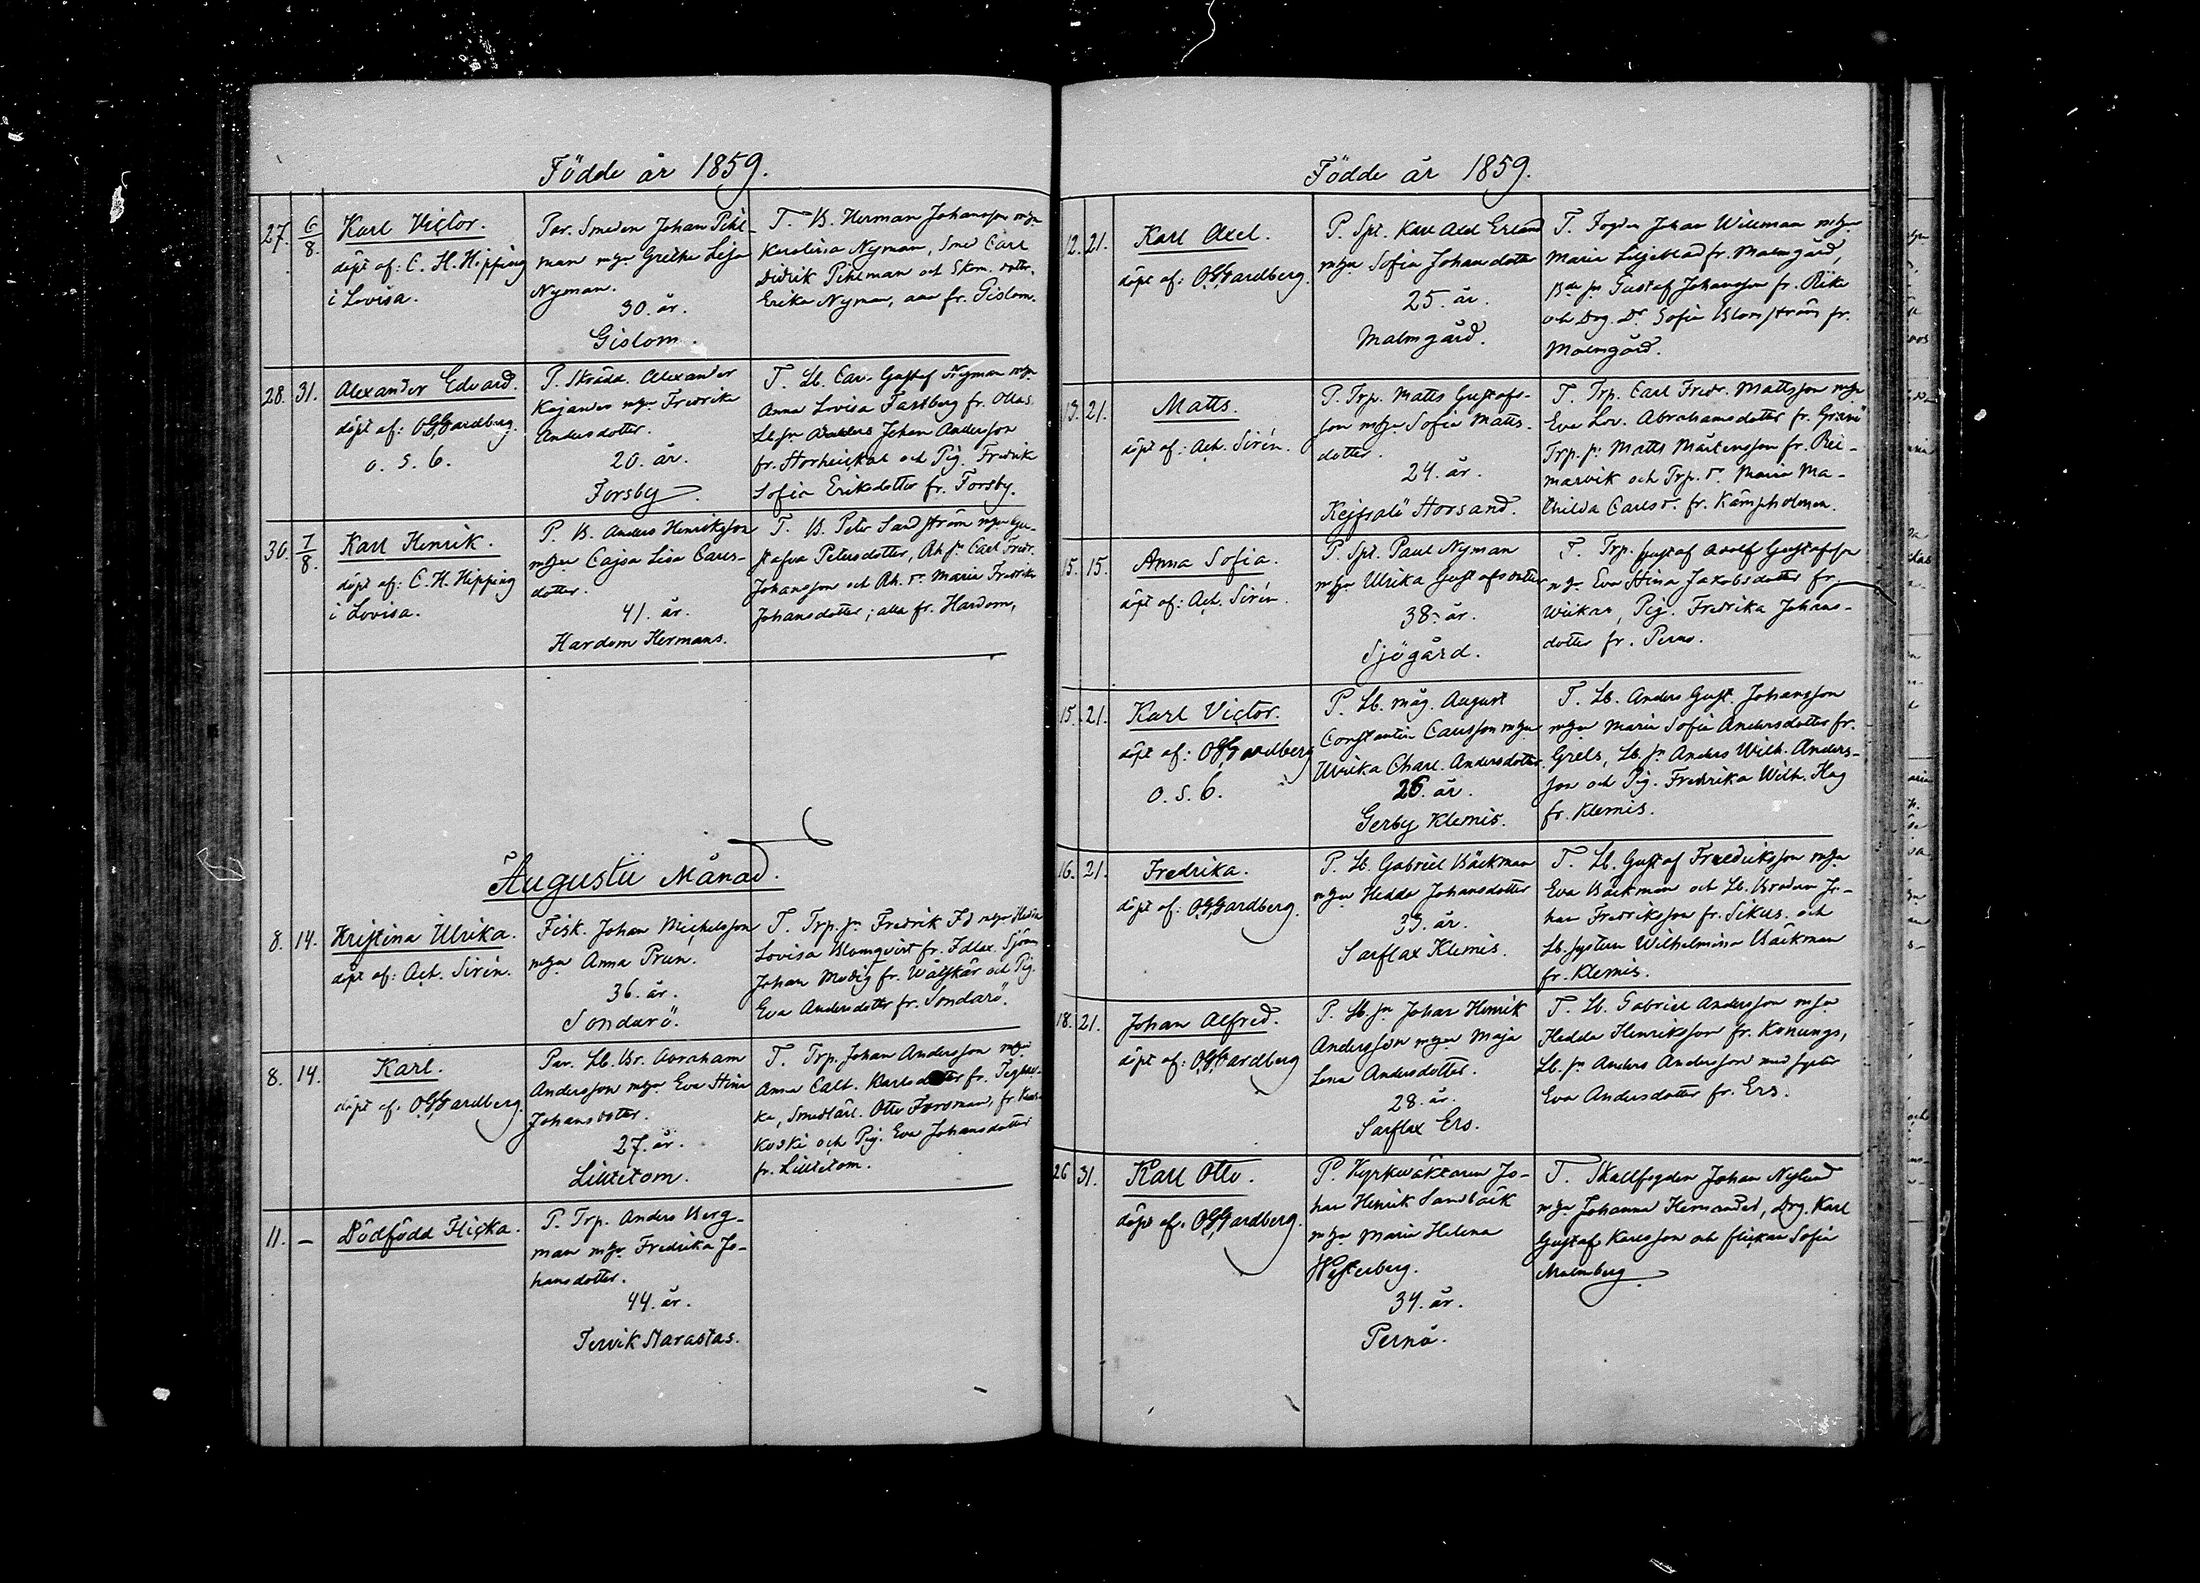 Födde år 1859.
27. 6/8.
Karl Victor.
döpt af: C. H. Hipping
i Lovisa.
Par. Smeden Johan Pihl-
man mhu Gretha Lisa
Nyman.
30. år.
Gislom.
T. B. Herman Johansson mhu
Karolina Nyman, Smed Carl
Didrik Pihlman och Skom. dotter
Erika Nyman, alla fr. Gislom.
28. 31.
Alexander Edvard.
döpt af: O. G. Gardberg.
o. s. b.
P. Skrädd. Alexander
Kajander mhu Fredrika
Andersdotter.
20. år.
Forsby.
T. Lb. Carl Gustaf Nyman mhu
Anna Lovisa Fastberg fr.
Lb. sn Johan Andersson
fr. och Pig. Fredrika
Sofia Eriksdotter fr. Forsby.
30. 7/8.
Karl Henrik.
döpt af: C. H. Hipping
i Lovisa.
P. B. Anders Henriksson
mhu Cajsa Lisa Carls-
dotter.
41. år.
Hardom Hermans.
T. B. Peter Sandström mhu Gu-
stafva Petersdotter, Rh. sn Carl Fredr.
Johansson och Rh. dr Maria Fredrika
Johansdotter; alla fr. Hardom,
Augustii Månad.
8. 14.
Kristina Ulrika.
döpt af: Ach. Sirén.
Fisk. Johan Michelsson
mhu Anna Prun.
36. år.
Sondarö.
T. Trp. sn Fredrik Id mhu Hedda
Lovisa Blomqvist fr. Idlax. Sjöm.
Johan Modig fr. Wålskär och Pig.
Eva Andersdotter fr. Sondarö.
8. 14.
Karl.
döpt af. O. G. Gardberg.
Par. Lb. Br. Abraham
Andersson mhu Eva Stina
Johansdotter.
27. år.
Lilltetom.
T. Trp. Johan Andersson mhu
Anna Cath. Karlsdotter fr.
ka, Smedlärl. Otto Forsman, fr.
koski och Pig. Eva Johansdotter
fr. Lilltetom.
11. –
Dödfödd Flicka.
P. Trp. Anders Berg-
man mhu Fredrika Jo-
hansdotter.
44. år.
Tervik Starastas.
Födde år 1859.
12. 21.
Karl Axel.
döpt af: O. G. Gardberg.
P. Spt. Karl Axel Erland
mhu Sofia Johansdotter
25. år.
Malmgård.
T. Fogden Johan Willman mhu
Maria Liljeblad fr. Malmgård,
Bde sn Gustaf Johansson fr. Rike
och Drg. Dr Sofia Blomström fr.
Malmgård.
13. 21.
Matts.
döpt af: Ach. Sirén.
P. Trp. Matts Gustafs-
son mhu Sofia Matts-
dotter.
24. år.
Kejfsalö Horsand.
T. Trp. Carl Fredr. Mattsson mhu
Eva Lov. Abrahamsdotter fr.
Trp. sn Matts Mårtensson fr. Rei-
marvik och Trp. dr Maria Ma-
thilda Carlsdr. fr. Kämpholmen.
15. 15.
Anna Sofia.
döpt af: Ach. Sirén.
P. Spt. Paul Nyman
mhu Ulrika Gustafsdotter
38. år.
Sjögård.
T. Trp. Gustaf Adolf Gustafsson
mhu Eva Stina Jakobsdotter fr.
Wiikas, Pig. Fredrika Johans-
dotter fr. Perno.
15. 21.
Karl Victor.
döpt af: O. G. Gardberg
o. s. b.
P. Lb. måg. August
Constantin Carlsson mhu
Ulrika Charl. Andersdotter
26. år.
Gerby Klemis.
T. Lb. Anders Gust. Johansson
mhu Maria Sofia Andersdotter fr.
Grels, Lb. sn Anders Wilh. Anders-
son och Pig. Fredrika Wilh. Hag
fr. Klemis.
16. 21.
Fredrika.
döpt af: O. G. Gardberg.
P. Lb. Gabriel Bäckman
mhu Hedda Johansdotter
33. år.
Sarflax Klemis.
T. Lb. Gustaf Fredriksson mhu
Eva Bäckman och Lb. Brodern Jo-
han Fredriksson fr. Sikus. och
Lb. systern Wilhelmina Bäckman
fr. Klemis.
18. 21.
Johan Alfred.
döpt af: O. G. Gardberg
P. Lb. sn Johan Henrik
Andersson mhu Maja
Lena Andersdotter.
28. år.
Sarflax Ers.
T. Lb. Gabriel Andersson mhu
Hedda Henriksson fr. Konungs,
Lb. sn Anders Andersson med syster
Eva Andersdotter fr. Ers.
26 31.
Karl Otto.
döpt af. O. G. Gardberg.
P. Kyrkväktaren Jo-
han Henrik Sandbäck
mhu Maria Helena
Westerberg.
34. år.
Pernå.
T. Skallfogden Johan Nylund
mhu Johanna Hernander, Drg. Karl
Gustaf Karlsson och flickan Sofia
Malmberg.